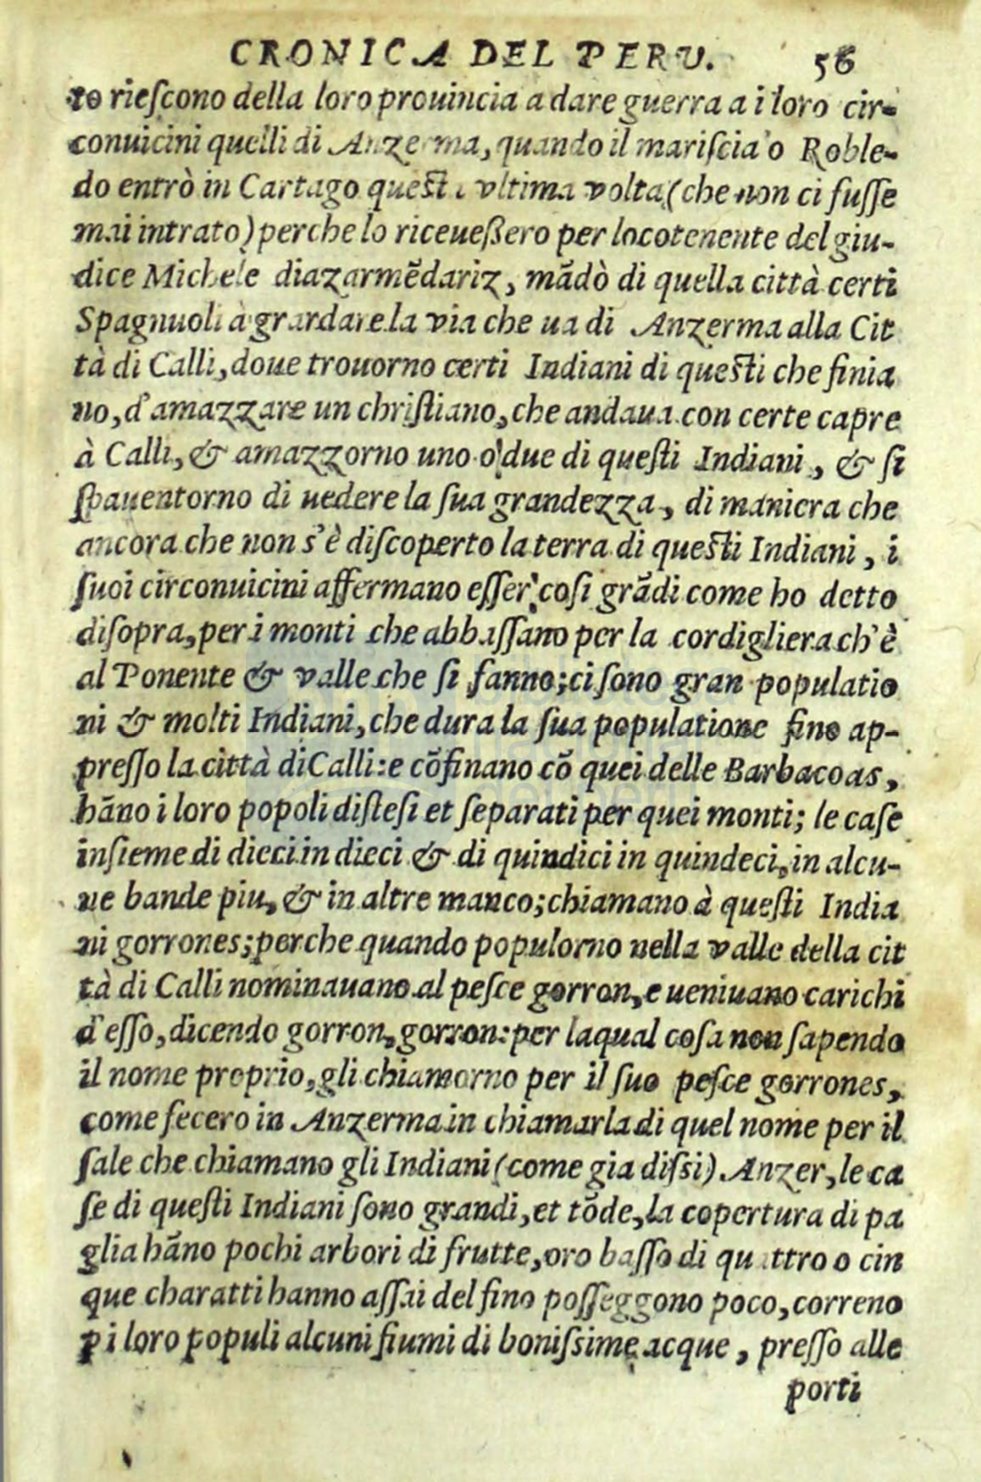 CRONICA DEL PERU. 56
to rieſcono della loro prouincia a dare guerra a i loro cir-
conuicini quelli di Anzerma, quando il mariſcialo Roble-
do entrò in Cartago queſta vltima volta (che non ci fuſſe
mai intrato) perche lo riceueßero per locotenente del giu-
dice Michele diazarmẽdariz, mãdò di quella città certi
Spagnuoli à grardare la via che ua di Anzerma alla Cit
tà di Calli, doue trouorno certi Indiani di queſti che finia
no, d'amazzare un chriſtiano, che andaua con certe capre
à Calli, & amazzorno uno o due di queſti Indiani, & ſi
ſpauentorno di uedere la ſua grandezza, di maniera che
ancora che non s'è diſcoperto la terra di queſti Indiani, i
ſuoi circonuicini affermano eſſer coſi grãdi come ho detto
diſopra, per i monti che abbaſſano per la cordigliera ch'è
al Ponente & valle che ſi fanno; ci ſono gran populatio
ni & molti Indiani, che dura la ſua populatione fino ap-
preſſo la città di Calli: e cõfinano cõ quei delle Barbacoas,
hãno i loro popoli diſteſi et ſeparati per quei monti; le caſe
inſieme di dieci in dieci & di quindici in quindeci, in alcu-
ne bande piu, & in altre manco; chiamano à queſti India
ni gorrones; perche quando populorno nella valle della cit
tà di Calli nominauano al peſce gorron, e ueniuano carichi
d'eſſo, dicendo gorron, gorron: per laqual coſa non ſapendo
il nome proprio, gli chiamorno per il ſuo peſce gorrones,
come fecero in Anzerma in chiamarla di quel nome per il
ſale che chiamano gli Indiani (come gia diſsi) Anzer, le ca
ſe di queſti Indiani ſono grandi, et tõde, la copertura di pa
glia hãno pochi arbori di frutte, oro baſſo di quattro o cin
que charatti hanno aſſai del fino poſſeggono poco, correno
p i loro populi alcuni fiumi di boniſsime acque, preſſo alle
porti